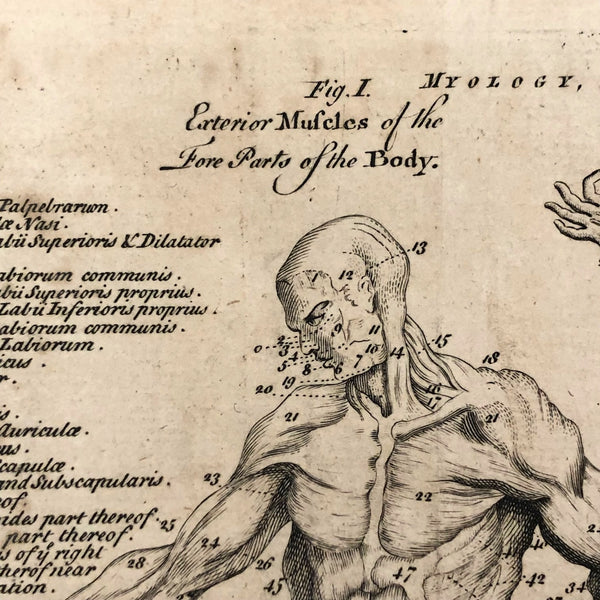 Fig. I. MYOLOGY,
Exterior Muſcles of the
Fore Parts of the Body.
Palpebrarum.
læ Nasi.
abii Superioris & Dilatator
abiorum communis.
bii Superioris proprius.
Labii Inferioris proprius.
abiorum communis.
Labiorum.
icus.
r.
is.
Auriculæ.
us.
capulæ.
and Subscapularis.
eof
oides part thereof.
part thereof.
is of ÿ right
therof near
ation.
13
1
12
9
11
0
2
3
4
5
8
6
7
10
14
15
18
19
20
16
17
21
21
22
23
24
25
26
28
45
47
42
34